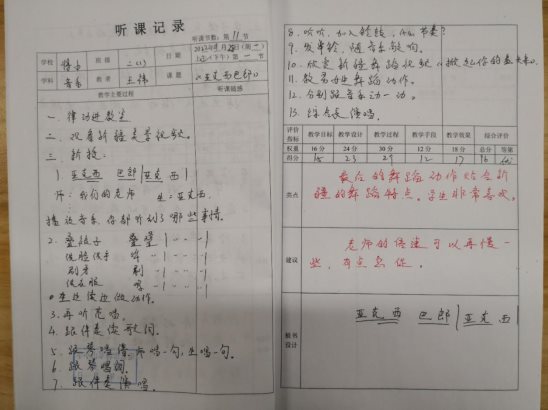 听课记录
听课节数：第11节
学校 班级 二(1) 日期 2022年 月 日(周二)
(下午)第一节
学科 音乐 教者 王伟 课题 《亚克西巴郎》
教学主要过程 听课随感
一、律动进教室
二、观看新疆美景视频。
三、新授：
1. 亚克西 巴郎|亚克西|
师：我们的老师 生：亚克西
播放音乐，你都听到了哪些事情。
2. 叠被子
洗脸洗手
刷牙
洗衣服
生边读边做动作。
3. 再听范唱。
4. 跟伴奏读歌词。
5. 跟琴唱谱，师唱一句，生唱一句。
6. 跟琴唱词。
7. 跟伴奏演唱。
8. 听听，加入铃鼓，什么节奏？
9. 发串铃，随音乐敲响。
10. 欣赏新疆舞蹈视频《掀起你的盖头来》
11. 教易动进舞蹈动作。
12. 合到跟音乐动一动。
13. 综合表演唱。
评价指标 教学目标 教学设计 教学过程 教学手段 教学效果 综合评价
权重 16分 24分 30分 12分 18分 总分 等第
得分 15 23 29 12 17 96 优
亮点
最后的舞蹈动作贴合新
疆的舞蹈特点。学生非常喜欢。
建议
老师的语速可以再慢一
些，有点急促。
板书设计
亚克西 巴郎|亚克西|